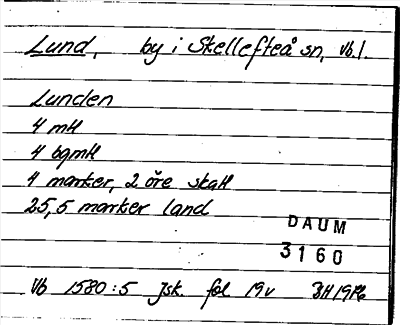 Lund, by i Skellefteå sn, Vb.l.
Lunden
4 mtl
4 bgmtl
4 marker, 2 öre skatt
25,5 marker land
DAUM
3160
Vb 1580:5 Jsk. fol 19v BH 1976